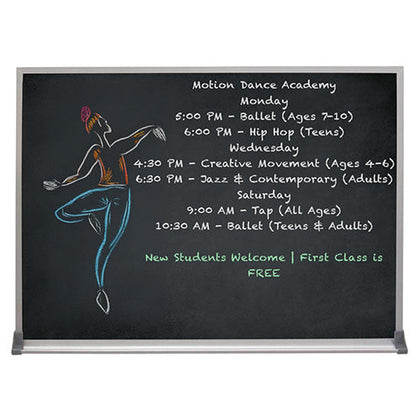 Motion Dance Academy
Monday
5:00 PM – Ballet (Ages 7–10)
6:00 PM – Hip Hop (Teens)
Wednesday
4:30 PM – Creative Movement (Ages 4–6)
6:30 PM – Jazz & Contemporary (Adults)
Saturday
9:00 AM – Tap (All Ages)
10:30 AM – Ballet (Teens & Adults)
New Students Welcome | First Class is
FREE